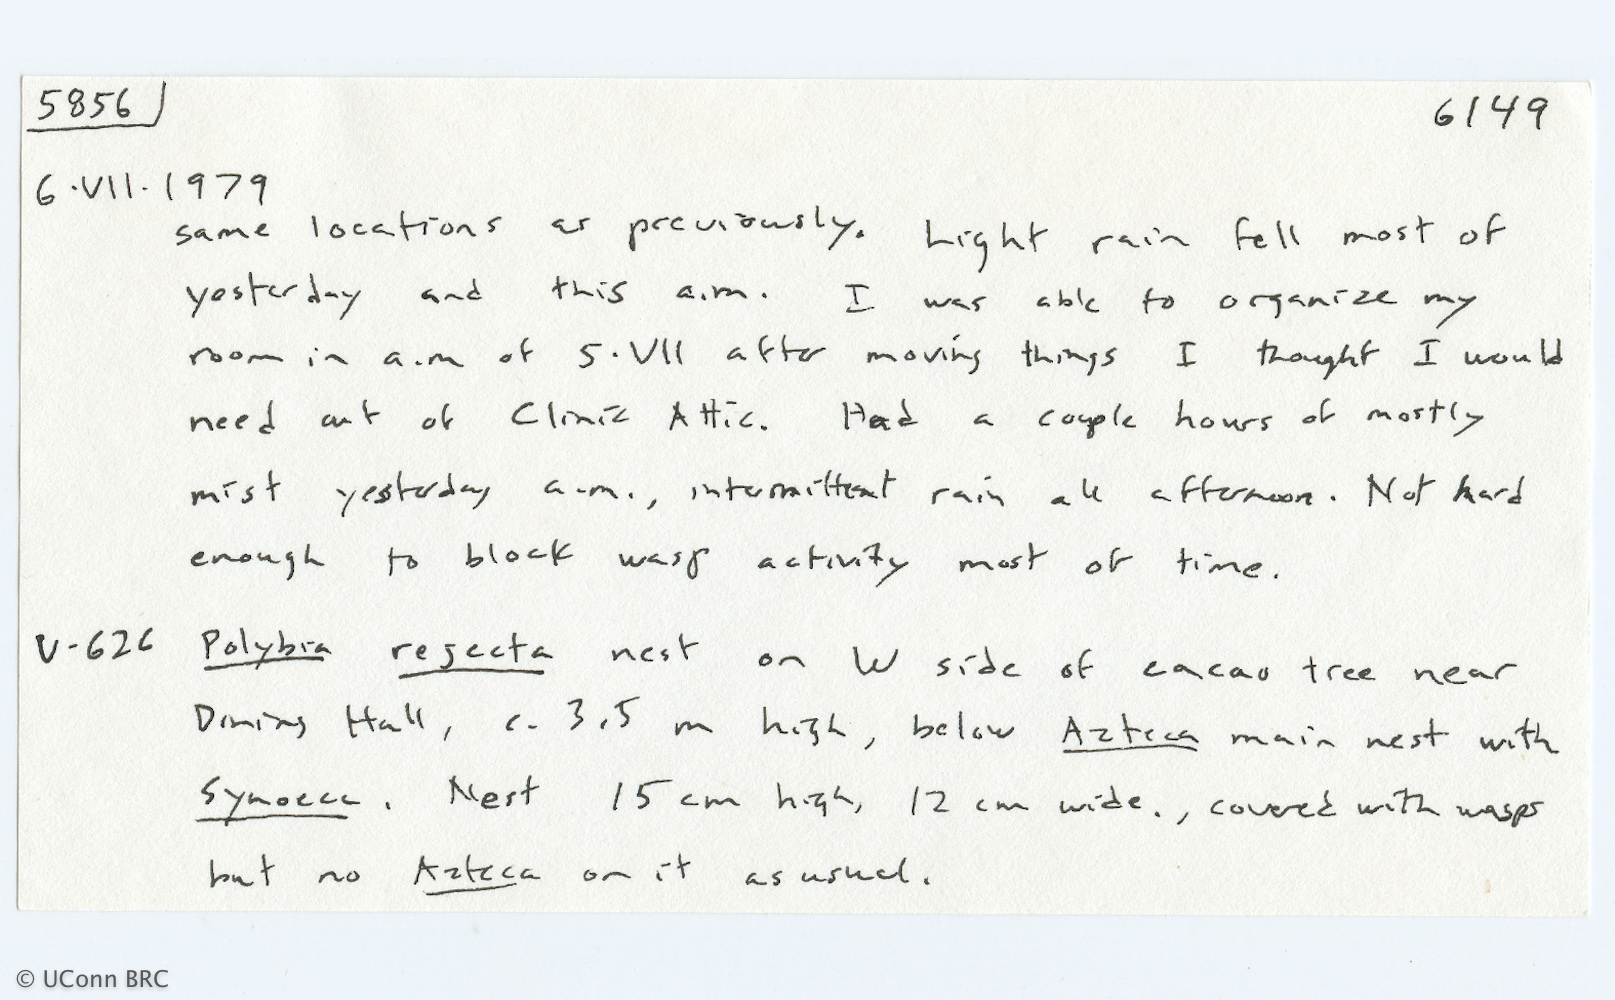 5856 6149
6·VII·1979
same locations as previously. Light rain fell most of
yesterday and this a.m. I was able to organize my
room in a.m of 5·VII after moving things I thought I would
need out of Clinic Attic. Had a couple hours of mostly
mist yesterday a.m., intermittent rain all afternoon. Not hard
enough to block wasp activity most of time.
V-626 Polybia rejecta nest on W side of cacao tree near
Dining Hall, c. 3.5 m high, below Azteca main nest with
Synoeca. Nest 15 cm high, 12 cm wide., covered with wasps
but no Azteca on it as usual.
© UConn BRC